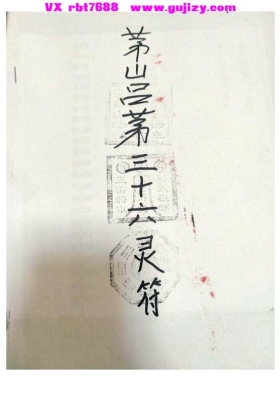 VX rbt7688 www.gujizy.com
茅山吕茅三十六灵符